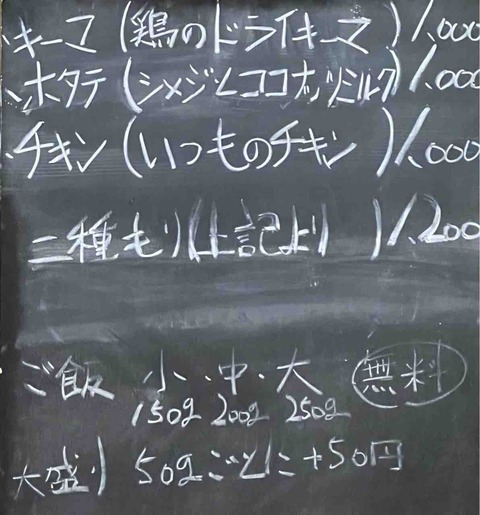 ・キーマ (鶏のドライキーマ) 1.000
・ホタテ (シメジとココナッツミルク) 1.000
・チキン (いつものチキン) 1.000
二種もり (上記より) 1.200
ご飯 小・中・大 無料
150g 200g 250g
大盛り 50gごとに+50円